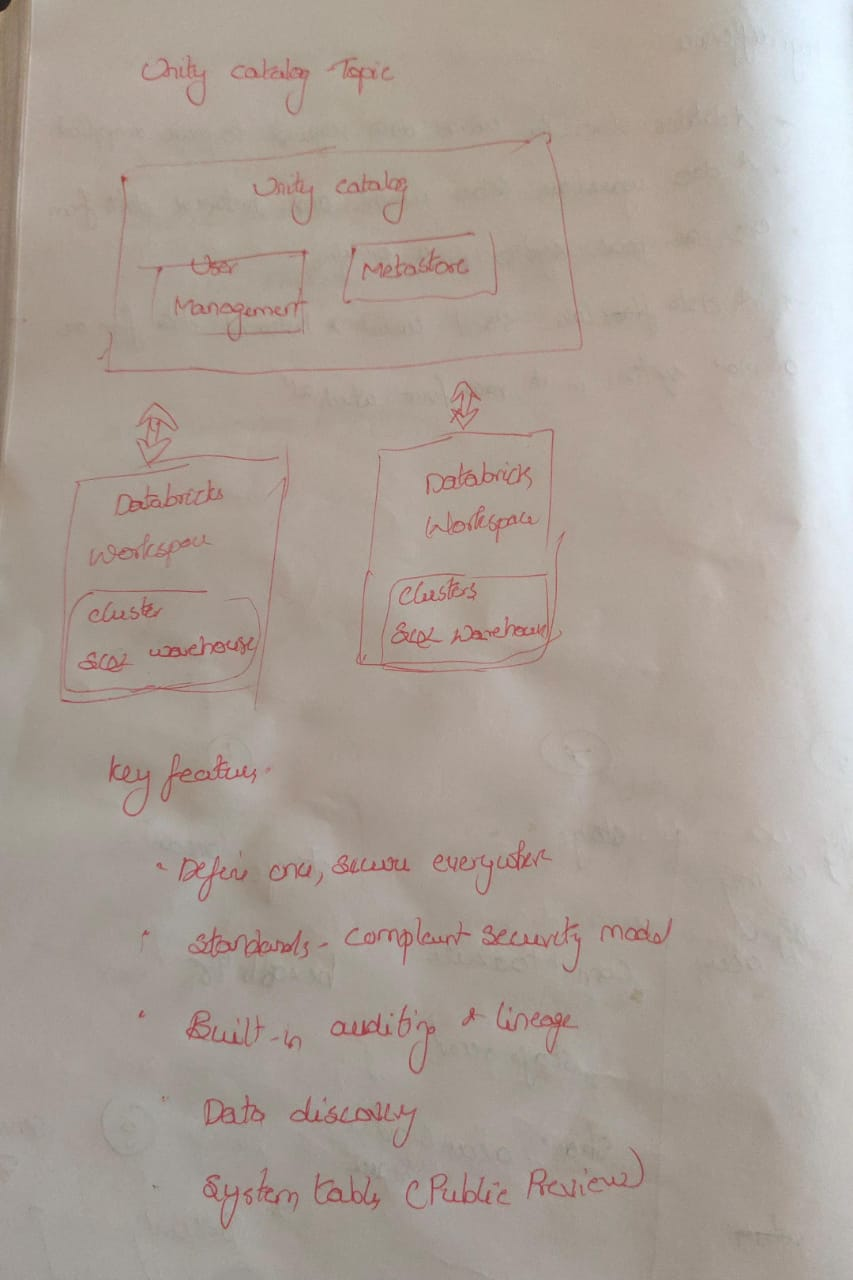 Unity catalog Topic
Unity catalog
User
Management
Metastore
Databricks
Workspace
cluster
SQL warehouse
Databricks
Workspace
Clusters
SQL Warehouse
key features.
Define once, secure everywhere
Standards - compliant security model
Built-in auditing & lineage
Data discovery
System tables (Public Preview)